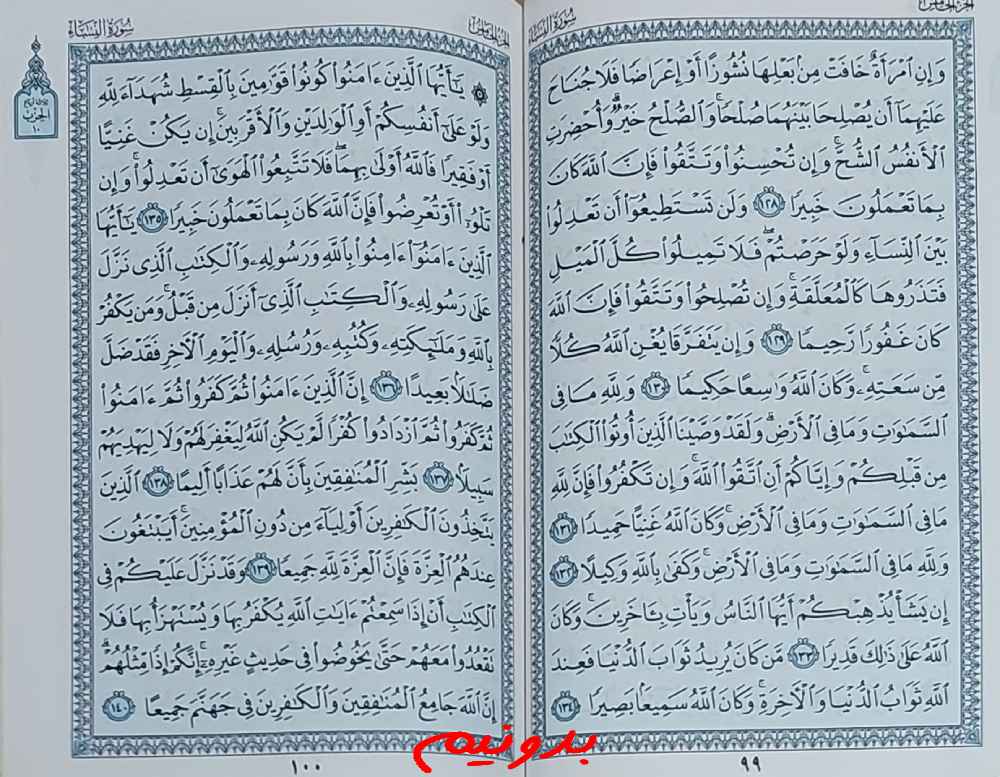 سُورَةُ النِّسَاءِ
وَإِنِ ٱمْرَأَةٌ خَافَتْ مِنۢ بَعْلِهَا نُشُوزًا أَوْ إِعْرَاضًا فَلَا جُنَاحَ
عَلَيْهِمَآ أَن يُصْلِحَا بَيْنَهُمَا صُلْحًاۚ وَٱلصُّلْحُ خَيْرٌۗ وَأُحْضِرَتِ
ٱلْأَنفُسُ ٱلشُّحَّۚ وَإِن تُحْسِنُوا۟ وَتَتَّقُوا۟ فَإِنَّ ٱللَّهَ كَانَ
بِمَا تَعْمَلُونَ خَبِيرًا ١٢٨ وَلَن تَسْتَطِيعُوٓا۟ أَن تَعْدِلُوا۟
بَيْنَ ٱلنِّسَآءِ وَلَوْ حَرَصْتُمْۖ فَلَا تَمِيلُوا۟ كُلَّ ٱلْمَيْلِ
فَتَذَرُوهَا كَٱلْمُعَلَّقَةِۚ وَإِن تُصْلِحُوا۟ وَتَتَّقُوا۟ فَإِنَّ ٱللَّهَ
كَانَ غَفُورًا رَّحِيمًا ١٢٩ وَإِن يَتَفَرَّقَا يُغْنِ ٱللَّهُ كُلًّا
مِّن سَعَتِهِۦۚ وَكَانَ ٱللَّهُ وَٰسِعًا حَكِيمًا ١٣٠ وَلِلَّهِ مَا فِى
ٱلسَّمَٰوَٰتِ وَمَا فِى ٱلْأَرْضِۗ وَلَقَدْ وَصَّيْنَا ٱلَّذِينَ أُوتُوا۟ ٱلْكِتَٰبَ
مِن قَبْلِكُمْ وَإِيَّاكُمْ أَنِ ٱتَّقُوا۟ ٱللَّهَۚ وَإِن تَكْفُرُوا۟ فَإِنَّ لِلَّهِ
مَا فِى ٱلسَّمَٰوَٰتِ وَمَا فِى ٱلْأَرْضِۚ وَكَانَ ٱللَّهُ غَنِيًّا حَمِيدًا ١٣١
وَلِلَّهِ مَا فِى ٱلسَّمَٰوَٰتِ وَمَا فِى ٱلْأَرْضِۚ وَكَفَىٰ بِٱللَّهِ وَكِيلًا ١٣٢
إِن يَشَأْ يُذْهِبْكُمْ أَيُّهَا ٱلنَّاسُ وَيَأْتِ بِـَٔاخَرِينَۚ وَكَانَ
ٱللَّهُ عَلَىٰ ذَٰلِكَ قَدِيرًا ١٣٣ مَّن كَانَ يُرِيدُ ثَوَابَ ٱلدُّنْيَا فَعِندَ
ٱللَّهِ ثَوَابُ ٱلدُّنْيَا وَٱلْءَاخِرَةِۚ وَكَانَ ٱللَّهُ سَمِيعًۢا بَصِيرًا ١٣٤
٩٩
سُورَةُ النِّسَاءِ
يَٰٓأَيُّهَا ٱلَّذِينَ ءَامَنُوا۟ كُونُوا۟ قَوَّٰمِينَ بِٱلْقِسْطِ شُهَدَآءَ لِلَّهِ
وَلَوْ عَلَىٰٓ أَنفُسِكُمْ أَوِ ٱلْوَٰلِدَيْنِ وَٱلْأَقْرَبِينَۚ إِن يَكُنْ غَنِيًّا
أَوْ فَقِيرًا فَٱللَّهُ أَوْلَىٰ بِهِمَاۖ فَلَا تَتَّبِعُوا۟ ٱلْهَوَىٰٓ أَن تَعْدِلُوا۟ۚ وَإِن
تَلْوُۥٓا۟ أَوْ تُعْرِضُوا۟ فَإِنَّ ٱللَّهَ كَانَ بِمَا تَعْمَلُونَ خَبِيرًا ١٣٥ يَٰٓأَيُّهَا
ٱلَّذِينَ ءَامَنُوٓا۟ ءَامِنُوا۟ بِٱللَّهِ وَرَسُولِهِۦ وَٱلْكِتَٰبِ ٱلَّذِى نَزَّلَ
عَلَىٰ رَسُولِهِۦ وَٱلْكِتَٰبِ ٱلَّذِىٓ أَنزَلَ مِن قَبْلُۚ وَمَن يَكْفُرْ
بِٱللَّهِ وَمَلَٰٓئِكَتِهِۦ وَكُتُبِهِۦ وَرُسُلِهِۦ وَٱلْيَوْمِ ٱلْءَاخِرِ فَقَدْ ضَلَّ
ضَلَٰلًۢا بَعِيدًا ١٣٦ إِنَّ ٱلَّذِينَ ءَامَنُوا۟ ثُمَّ كَفَرُوا۟ ثُمَّ ءَامَنُوا۟
ثُمَّ كَفَرُوا۟ ثُمَّ ٱزْدَادُوا۟ كُفْرًا لَّمْ يَكُنِ ٱللَّهُ لِيَغْفِرَ لَهُمْ وَلَا لِيَهْدِيَهُمْ
سَبِيلًۢا ١٣٧ بَشِّرِ ٱلْمُنَٰفِقِينَ بِأَنَّ لَهُمْ عَذَابًا أَلِيمًا ١٣٨ ٱلَّذِينَ
يَتَّخِذُونَ ٱلْكَٰفِرِينَ أَوْلِيَآءَ مِن دُونِ ٱلْمُؤْمِنِينَۚ أَيَبْتَغُونَ
عِندَهُمُ ٱلْعِزَّةَ فَإِنَّ ٱلْعِزَّةَ لِلَّهِ جَمِيعًا ١٣٩ وَقَدْ نَزَّلَ عَلَيْكُمْ فِى
ٱلْكِتَٰبِ أَنْ إِذَا سَمِعْتُمْ ءَايَٰتِ ٱللَّهِ يُكْفَرُ بِهَا وَيُسْتَهْزَأُ بِهَا فَلَا
تَقْعُدُوا۟ مَعَهُمْ حَتَّىٰ يَخُوضُوا۟ فِى حَدِيثٍ غَيْرِهِۦٓۚ إِنَّكُمْ إِذًا مِّثْلُهُمْۗ
إِنَّ ٱللَّهَ جَامِعُ ٱلْمُنَٰفِقِينَ وَٱلْكَٰفِرِينَ فِى جَهَنَّمَ جَمِيعًا ١٤٠
١٠٠
الحزب
١٠
بدونیم